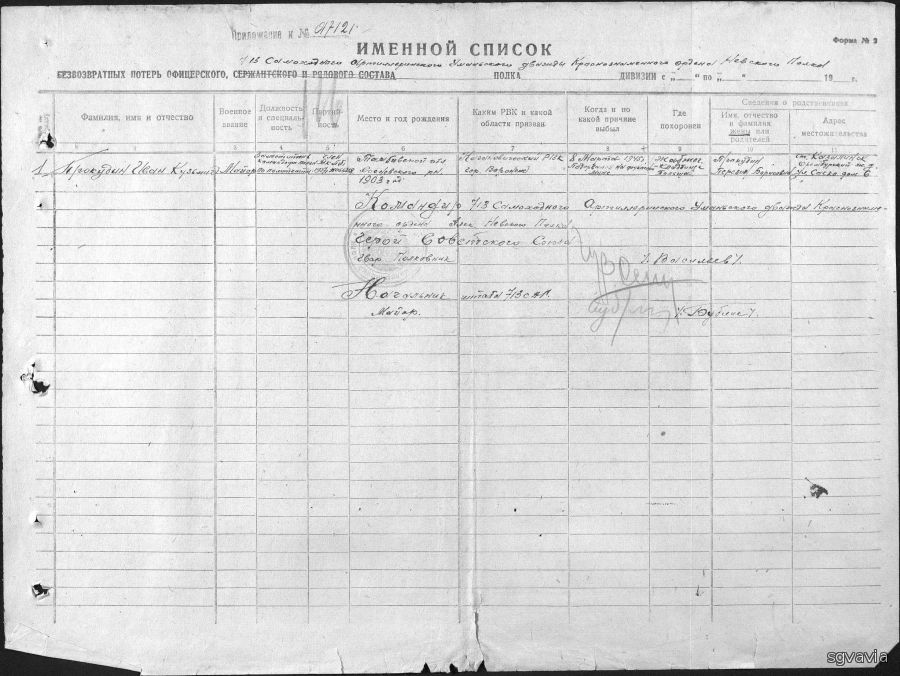 Приложение к № 017121
Форма № 3
ИМЕННОЙ СПИСОК
713 Самоходного Артиллерийского Уманьского дважды Краснознаменного ордена Невского Полка
БЕЗВОЗВРАТНЫХ ПОТЕРЬ ОФИЦЕРСКОГО, СЕРЖАНТСКОГО И РЯДОВОГО СОСТАВА ПОЛКА ДИВИЗИИ с „ “ по „ “ 19 г.
Фамилия, имя и отчество
Военное
звание
Должность
и специаль-
ность
Партий-
ность
Место и год рождения
Каким РВК и какой
области призван
Когда и по
какой причине
выбыл
Где
похоронен
Сведения о родственниках
Имя, отчество
и фамилия
жены или
родителей
Адрес
местожительства
3 4 5 6 7 8 9 10 11
1 Прокудин Иван Кузьмич
Майор
Заместитель
командира
Член
Тамбовской обл.
р-н
1903 г.
РВК
гор Воронеж
8 Марта 1945г.
на
мине
Польша
Прокудин
ст.
ул. дом 6
Командир 713 Самоходного Артиллерийского Уманьского дважды Краснознамен-
ного ордена Алек Невского Полка
Герой Советского Союза
Гвар Полковник /Васильев/.
Начальник штаба 713 САП.
Майор.
sgvavia